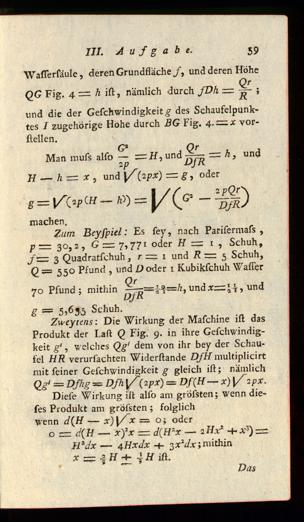 III. Aufgabe. 59
Wassersäule, deren Grundfläche f, und deren Höhe
QG Fig. 4 = h ist, nämlich durch fDh = Qr/R ;
und die der Geschwindigkeit g des Schaufelpunk-
tes I zugehörige Hohe durch BG Fig. 4. = x vor-
stellen.
Man muss also G²/2p = H, und Qr/DfR = h, und
H — h = x, und √(2px) = g, oder
g = √(2p(H — h)) = √(G² — 2pQr/DfR)
machen.
Es sey, nach Parisermass,
p = 30,2, G = 7,771 oder H = 1, Schuh,
f = 3 Quadratschuh, r = 1 und R = 5 Schuh,
Q = 550 Pfund, und D oder 1 Kubikschuh Wasser
70 Pfund; mithin Qr/DfR = = h, und x = , und
g = Schuh.
Zweytens: Die Wirkung der Maschine ist das
Produkt der Last Q Fig. 9. in ihre Geschwindig-
keit g', welches Qg' dem von ihr bey der Schau-
fel HR verursachten Widerstande DfH multiplicirt
mit seiner Geschwindigkeit g gleich ist; nämlich
Qg' = Dfhg = Dfh√(2px) = Df(H — x)√2px.
Diese Wirkung ist also am grössten; wenn die-
ses Produkt am grössten; folglich
wenn d(H — x)√x = 0; oder
0 = d(H — x)²x = d(H²x — 2Hx² + x³) =
H²dx — 4Hxdx + 3x²dx; mithin
x = ⅔H ± ⅓H ist.
Das